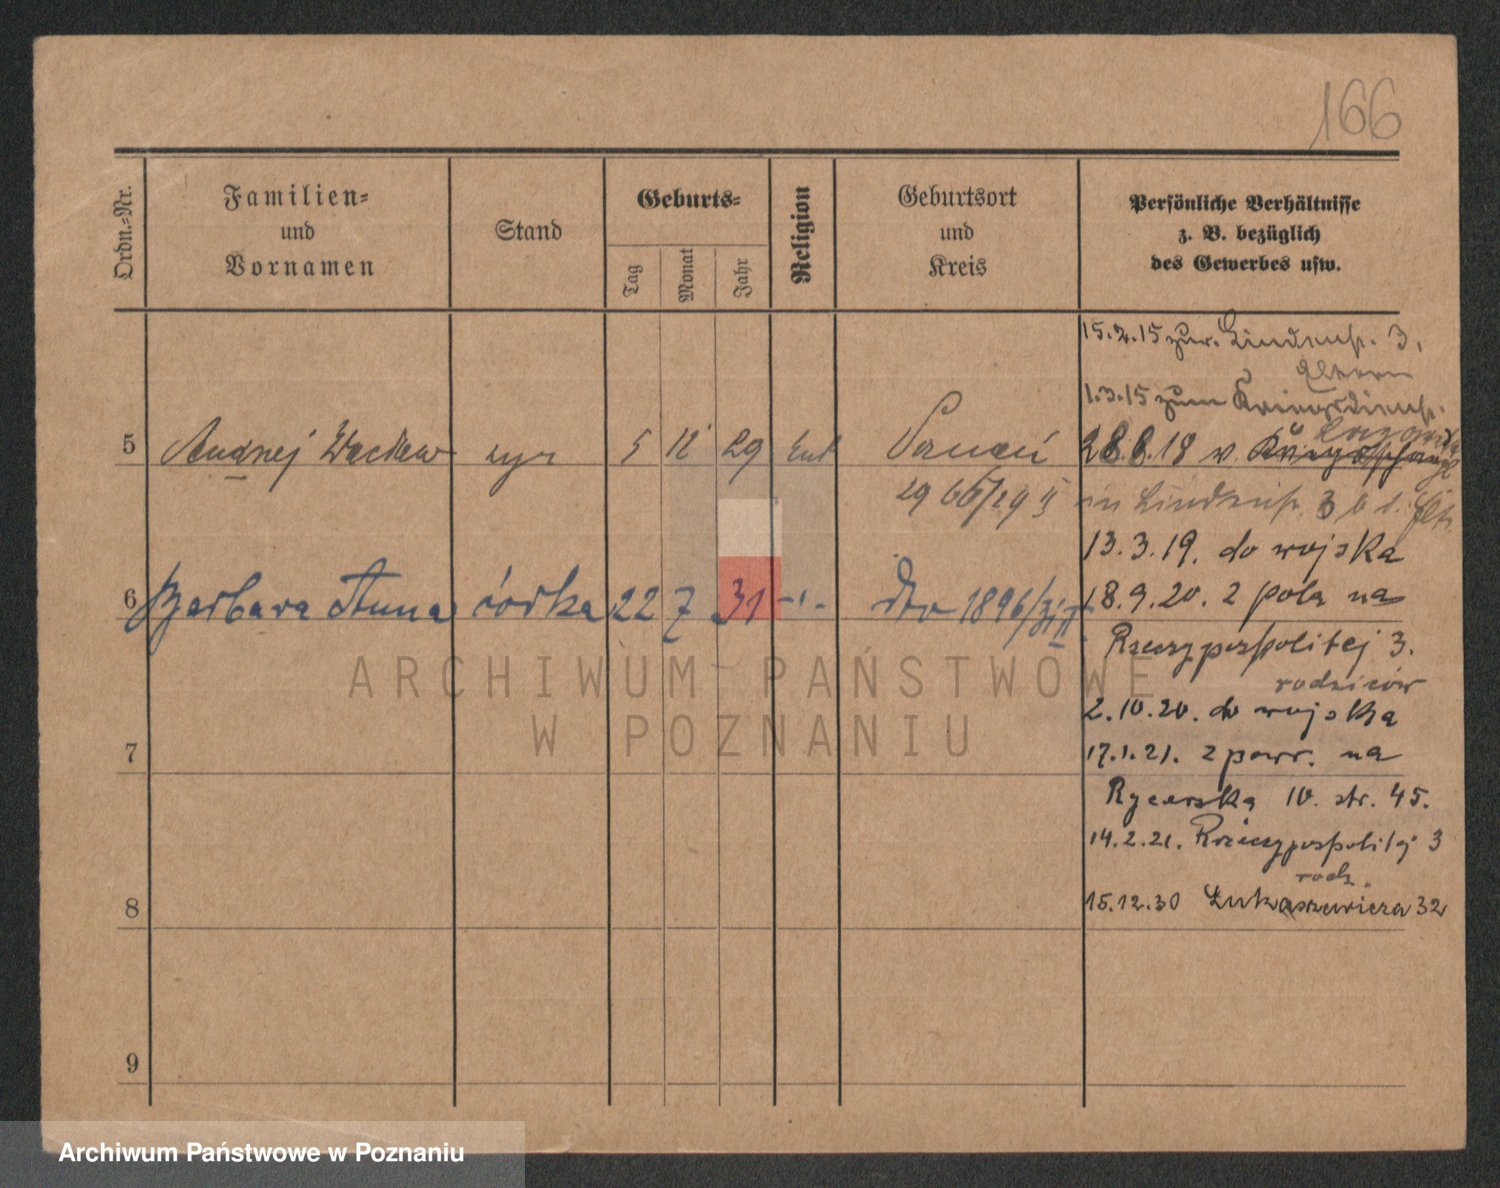 166
Ordn.-Nr.
Familien-
und
Vornamen
Stand
Geburts-
Tag
Monat
Jahr
Religion
Geburtsort
und
Kreis
Persönliche Verhältnisse
z. B. bezüglich
des Gewerbes usw.
5 Andrzej Wacław syn 5 12 29 kat Poznań
2966/29 II
6 Barbara Anna córka 22 7 31 -"- dto 1896/31 II
7
8
9
15.2.15 zur. Lindenst. 3.
Eltern
1.3.15 zum Kriegsdienst.
28.8.18 v.
in Lindenst. 3 b. d. Elt.
13.3.19. do wojska
18.9.20. z pola na
Rzeczypospolitej 3.
rodziców
2.10.20. do wojska
17.1.21. z powr. na
Rycerska 10. str. 45.
14.2.21. Rzeczypospolitej 3
rodz.
15.12.30 Łukaszewicza 32
ARCHIWUM PAŃSTWOWE
W POZNANIU
Archiwum Państwowe w Poznaniu